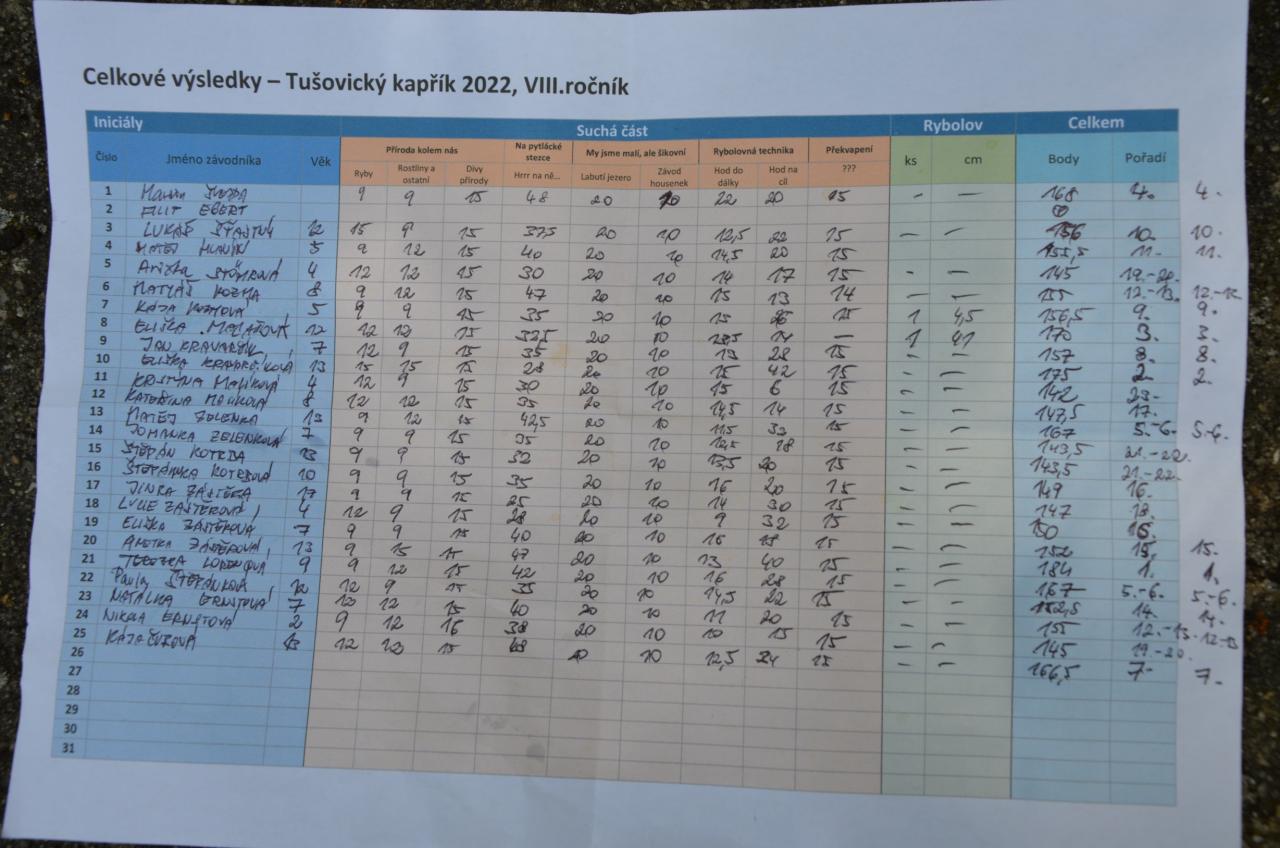 Celkové výsledky – Tušovický kapřík 2022, VIII.ročník
Iniciály Suchá část Rybolov Celkem
Číslo Jméno závodníka Věk Příroda kolem nás Na pytlácké stezce My jsme malí, ale šikovní Rybolovná technika Překvapení ks cm Body Pořadí
Ryby Rostliny a ostatní Divy přírody Hrrr na ně... Labutí jezero Závod housenek Hod do dálky Hod na cíl ???
1 9 9 15 48 20 10 22 20 15 – – 168 4. 4.
2 FILIP EBERT
3 LUKÁŠ ŠŤASTNÝ 12 15 9 15 37,5 20 10 12,5 22 15 – – 156 10. 10.
4 MATĚJ 5 9 12 15 40 20 10 14,5 20 15 155,5 11. 11.
5 4 12 12 15 30 20 10 14 17 15 – – 145 19.-20.
6 MATYÁŠ KOZMA 8 9 12 15 47 20 10 15 13 14 – – 155 12.-13.
7 KÁJA 5 9 9 15 35 20 10 15 15 1 4,5 156,5 9. 9.
8 ELIŠKA 12 12 12 15 32,5 20 10 14 — 1 41 170 3. 3.
9 JAN KRAVAŘÍK 7 12 9 15 35 20 10 13 28 15 – – 157 8. 8.
10 ELIŠKA 13 15 15 15 28 20 10 15 42 15 – – 175 2. 2.
11 KRISTÝNA MALÍKOVÁ 4 12 9 15 30 20 10 15 6 15 – – 142 23.
12 KATEŘINA MALÍKOVÁ 8 12 12 15 35 20 10 14,5 14 15 – – 147,5 17.
13 MATĚJ ZELENKA 13 9 12 15 42,5 20 10 11,5 32 15 – – 167 5.-6. 5.-6.
14 ZELENKOVÁ 7 9 9 15 35 20 10 12,5 18 15 – – 143,5 21.-22.
15 ŠTĚPÁN KOTRBA 13 9 9 15 32 20 10 13,5 20 15 – – 143,5 21.-22.
16 ŠTĚPÁNKA KOTRBOVÁ 10 9 9 15 35 20 10 16 20 15 – – 149 16.
17 17 9 9 15 25 20 10 14 30 15 – – 147 18.
18 4 12 9 15 28 20 10 9 32 15 – – 150
19 ELIŠKA 7 9 9 15 40 20 10 16 18 15 – – 152 15. 15.
20 13 9 15 15 47 20 10 13 40 15 – – 184 1. 1.
21 9 9 12 15 42 20 10 16 28 15 – – 167 5.-6. 5.-6.
22 Pavla ŠTĚPÁNKOVÁ 12 9 15 35 20 10 14,5 22 15 – – 152,5 14. 14.
23 NATÁLKA ERNSTOVÁ 7 12 15 40 20 10 11 20 15 – – 155 12.-13. 12.-13
24 NIKOLA ERNSTOVÁ 2 9 12 38 20 10 10 15 15 – – 145 19.-20.
25 KÁJA 12 12 15 10 12,5 24 15 – – 166,5 7. 7.
26
27
28
29
30
31